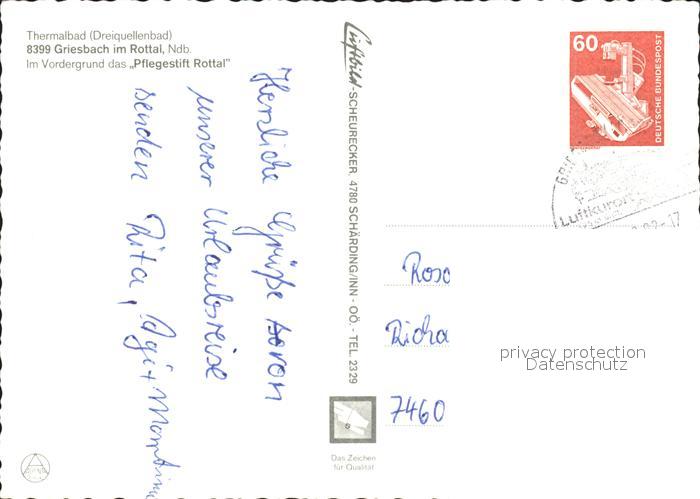 Thermalbad (Dreiquellenbad)
8399 Griesbach im Rottal, Ndb.
Im Vordergrund das „Pflegestift Rottal"
Herzliche Grüße von
unserer Urlaubsreise
senden Rita, Agi +
Luftbild-SCHEURECKER 4780 SCHÄRDING/INN - OÖ. - TEL. 2329
60
DEUTSCHE BUNDESPOST
Luftkurort
Rosa
Richa
7460
privacy protection
Datenschutz
Das Zeichen
für Qualität